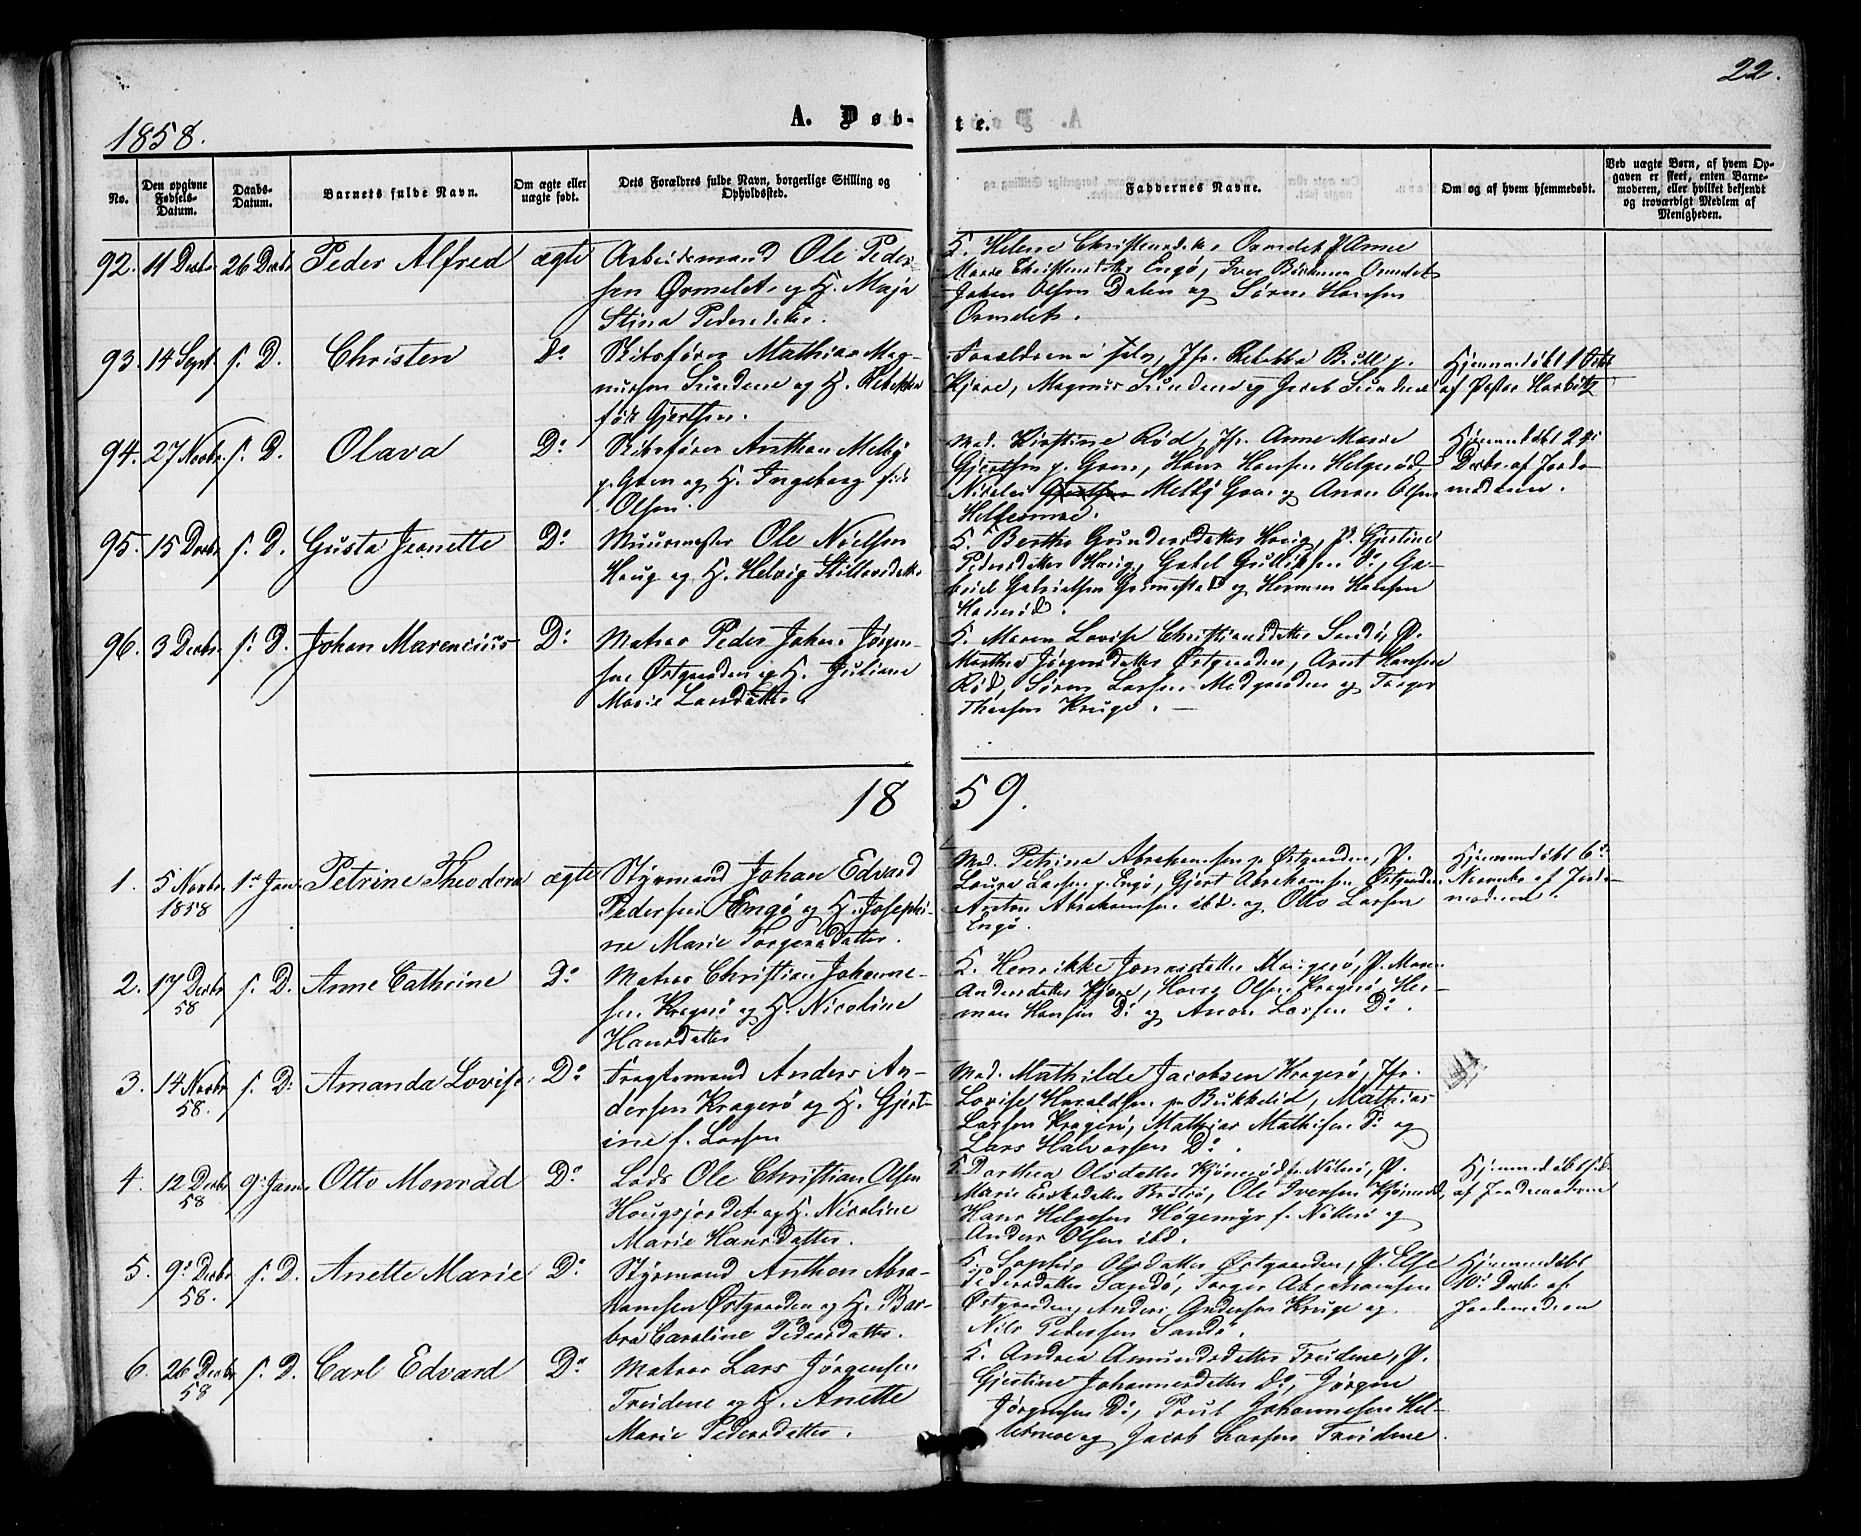 22.
A. Døb- te.
1858.
No.
Den opgivne Fødsels-Datum.
Daabs-Datum.
Barnets fulde Navn.
Om ægte eller uægte født.
Dets Forældres fulde Navn, borgerlige Stilling og Opholdssted.
Faddernes Navne.
Om og af hvem hjemmedøbt.
Ved uægte Børn, af hvem Opgaven er skeet, enten Barnemoderen, eller hvilket bekjendt og troværdigt Medlem af Menigheden.
92. 11 Decbr 26 Decbr Peder Alfred ægte Arbeidsmand Ole Peder-
sen Ormelet og H. Maja
Stina Pedersdatter.
Marie Christensdatter Engø, Iver
Johan Olsen Dalen og Søren Hansen
93. 14 Sept. s. D. Christen Do Skibsfører Mathias Mag-
nussen Sundene og H. Rebekka
født Gjertsen.
Forældrene selv, Jfr. Rebekka Bull p.
Kjøre, Magnus Sundene og Jacob Sundene
Hjemmedøbt 1 Octbr
af Pastor Harbitz
94. 27 Novbr. s. D. Olava Do Skibsfører Anthon Melby
p. Goen og H. Ingeborg født
Olsen.
Mad. Kirstine Rød, Jfr. Anne Marie
Gjertsen p. Goen, Hans Hansen Helgerød,
Nicolai Melby Goen og Anton Olsen
Hjemmedøbt 29
af Jorde-
moderen.
95. 15 Decbr s. D. Gusta Jeanette Do Muurmester Ole Nielsen
Houg og H. Helvig
K. Berthe Gundersdatter Houg, P. Gjestine
Pedersdatter Houg, Gabel Gulliksen Do, Ga-
briel Gabrielsen og Herman Hansen
96. 3 Decbr. s. D. Johan Marencius Do Matros Peder Johan Jørgen-
sen Østgaarden og H. Juliane
Marie Larsdatter.
K. Maren Lovise Christiansdatter Sandø, P.
Marthea Jørgensdatter Østgaarden, Arnt Hansen
Rød, Søren Larsen Medgaarden og Torger
Kruge.
18 59.
1. 5 Novbr 1858 1ste Jan. Petrine Theodora ægte Styrmand Johan Edvard
Pedersen Engø og H. Josephi-
ne Marie Torgersdatter.
Mad. Petrina Abrahamsen p. Østgaarden, P.
Laura Larsen p. Engø, Gjert Abrahamsen Østgaarden,
Anton Abrahamsen ibd. og Otto Larsen
Engø.
Hjemmedøbt 6te
Novembr af Jorde-
moderen.
2. 17 Decbr 58 s. D. Anne Cathrine Do Matros Christian Johanne-
sen Kragerø og H. Nicoline
Hansdatter.
K. Henrikke Jonasdatter Mangerø, P. Maren
Andersdatter Kjøre, Hans Olsen Kragerø, Her-
man Hansen Do og Anton Larsen Do.
3. 14 Novbr 58. s. D. Amanda Lovise Do Fragtemand Anders An-
dersen Kragerø og H. Gjert-
ine f. Larsen
Mad. Mathilde Jacobsen Kragerø, Jfr.
Lovise Haraldsen p. Bukkelid, Mathias
Larsen Kragerø, Mathias Mathisen Do og
Lars Halvorsen Do.
4. 12 Decbr 58 9. Jan. Otto Monrad Do Lods Ole Christian Olsen
Hougsjordet og H. Nicoline
Marie Hansdatter.
K. Dorthea Olsdatter Kjønerød p. Nøterø, P.
Marie Eriksdatter Brøtsø, Ole Iversen Kjønerød,
Hans Helgesen Høgemyr p. Nøtterø og
Anders Olsen ibd.
Hjemmedøbt s. D.
af Jordemoderen
5. 9. Decbr 58. s. D. Anette Marie Do Styrmand Anthon Abra-
hamsen Østgaarden og H. Bar-
bra Caroline Pedersdatter.
K. Sophie Olsdatter Østgaarden, P. Else
Pedersdatter Sandø, Torger Abrahamsen
Østgaarden, Anders Andersen Kruge og
Nils Pedersen Sandø.
Hjemmedøbt
10. Decbr af
Jordemoderen
6. 26 Decbr 58 s. D. Carl Edvard Do Matros Lars Jørgensen
Treidene og H. Anette
Marie Pedersdatter.
K. Andrea Amundsdatter Treidene, P.
Gjestine Johannesdatter Do, Jørgen
Jørgensen Do, Poul Johannesen Hol-
og Jacob Larsen Treidene.